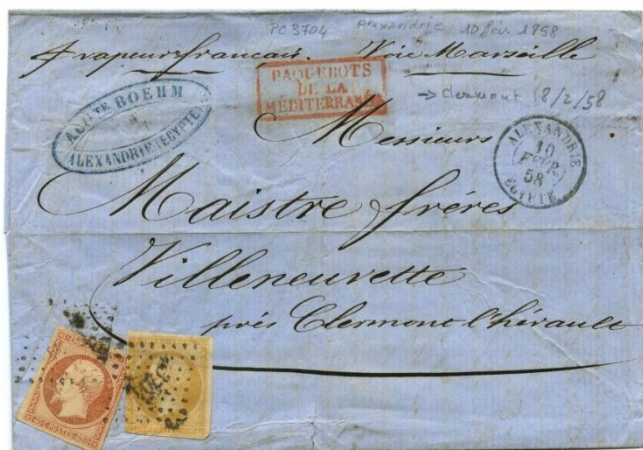 PC 3704 Alexandrie 10 fév. 1858
p. vapeur francais. Voie Marseille
PAQUEBOTS
DE LA
MÉDITERRANÉE
→ Clermont 18/2/58
AUGTE BOEHM
ALEXANDRIE (EGYPTE)
Messieurs
ALEXANDRIE
10
FEVR.
58
EGYPTE
Maistre frères
Villeneuvette
près Clermont l'hérault